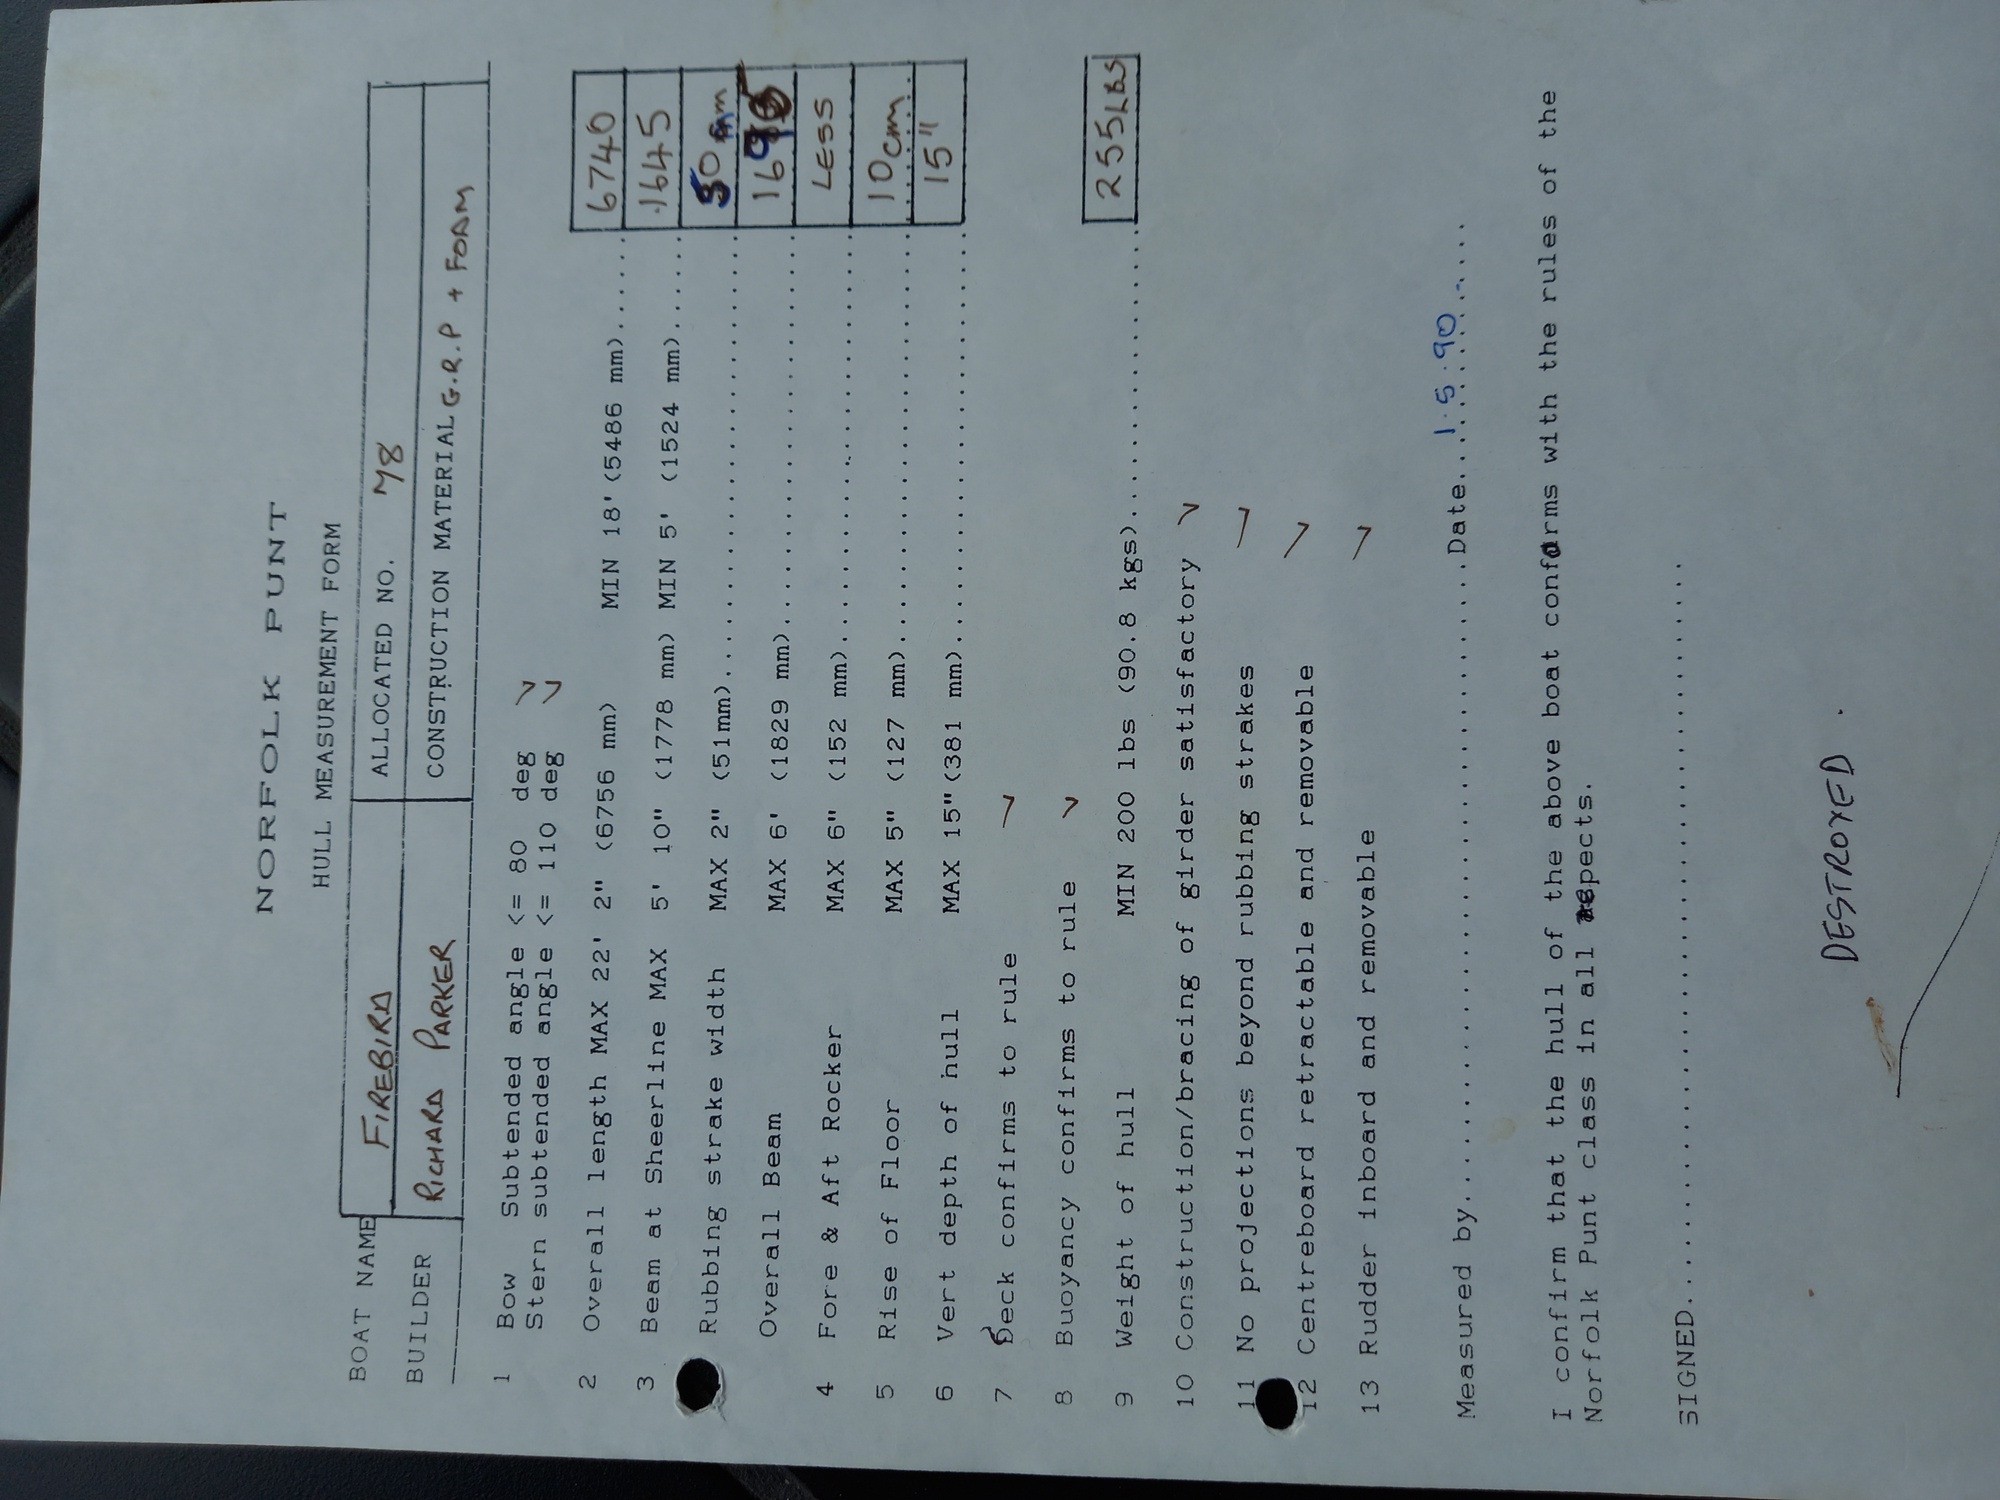 NORFOLK PUNT
HULL MEASUREMENT FORM
BOAT NAME FIREBIRD ALLOCATED NO. 78
BUILDER RICHARD PARKER CONSTRUCTION MATERIAL G.R.P + FOAM
1 Bow Subtended angle <= 80 deg ✓
Stern subtended angle <= 110 deg ✓
2 Overall length MAX 22' 2" (6756 mm) MIN 18' (5486 mm)...... 6740
3 Beam at Sheerline MAX 5' 10" (1778 mm) MIN 5' (1524 mm)...... 1645
Rubbing strake width MAX 2" (51mm)............................ 50 mm
Overall Beam MAX 6' (1829 mm)......................... 1695
4 Fore & Aft Rocker MAX 6" (152 mm).......................... LESS
5 Rise of Floor MAX 5" (127 mm)............................ 10cm
6 Vert depth of hull MAX 15" (381 mm)........................... 15"
7 Deck confirms to rule ✓
8 Buoyancy confirms to rule ✓
9 Weight of hull MIN 200 lbs (90.8 kgs)................... 255LBS
10 Construction/bracing of girder satisfactory ✓
11 No projections beyond rubbing strakes ✓
12 Centreboard retractable and removable ✓
13 Rudder inboard and removable ✓
Measured by..................................Date...1.5.90....
I confirm that the hull of the above boat conforms with the rules of the
Norfolk Punt class in all aspects.
SIGNED.......................................
DESTROYED .